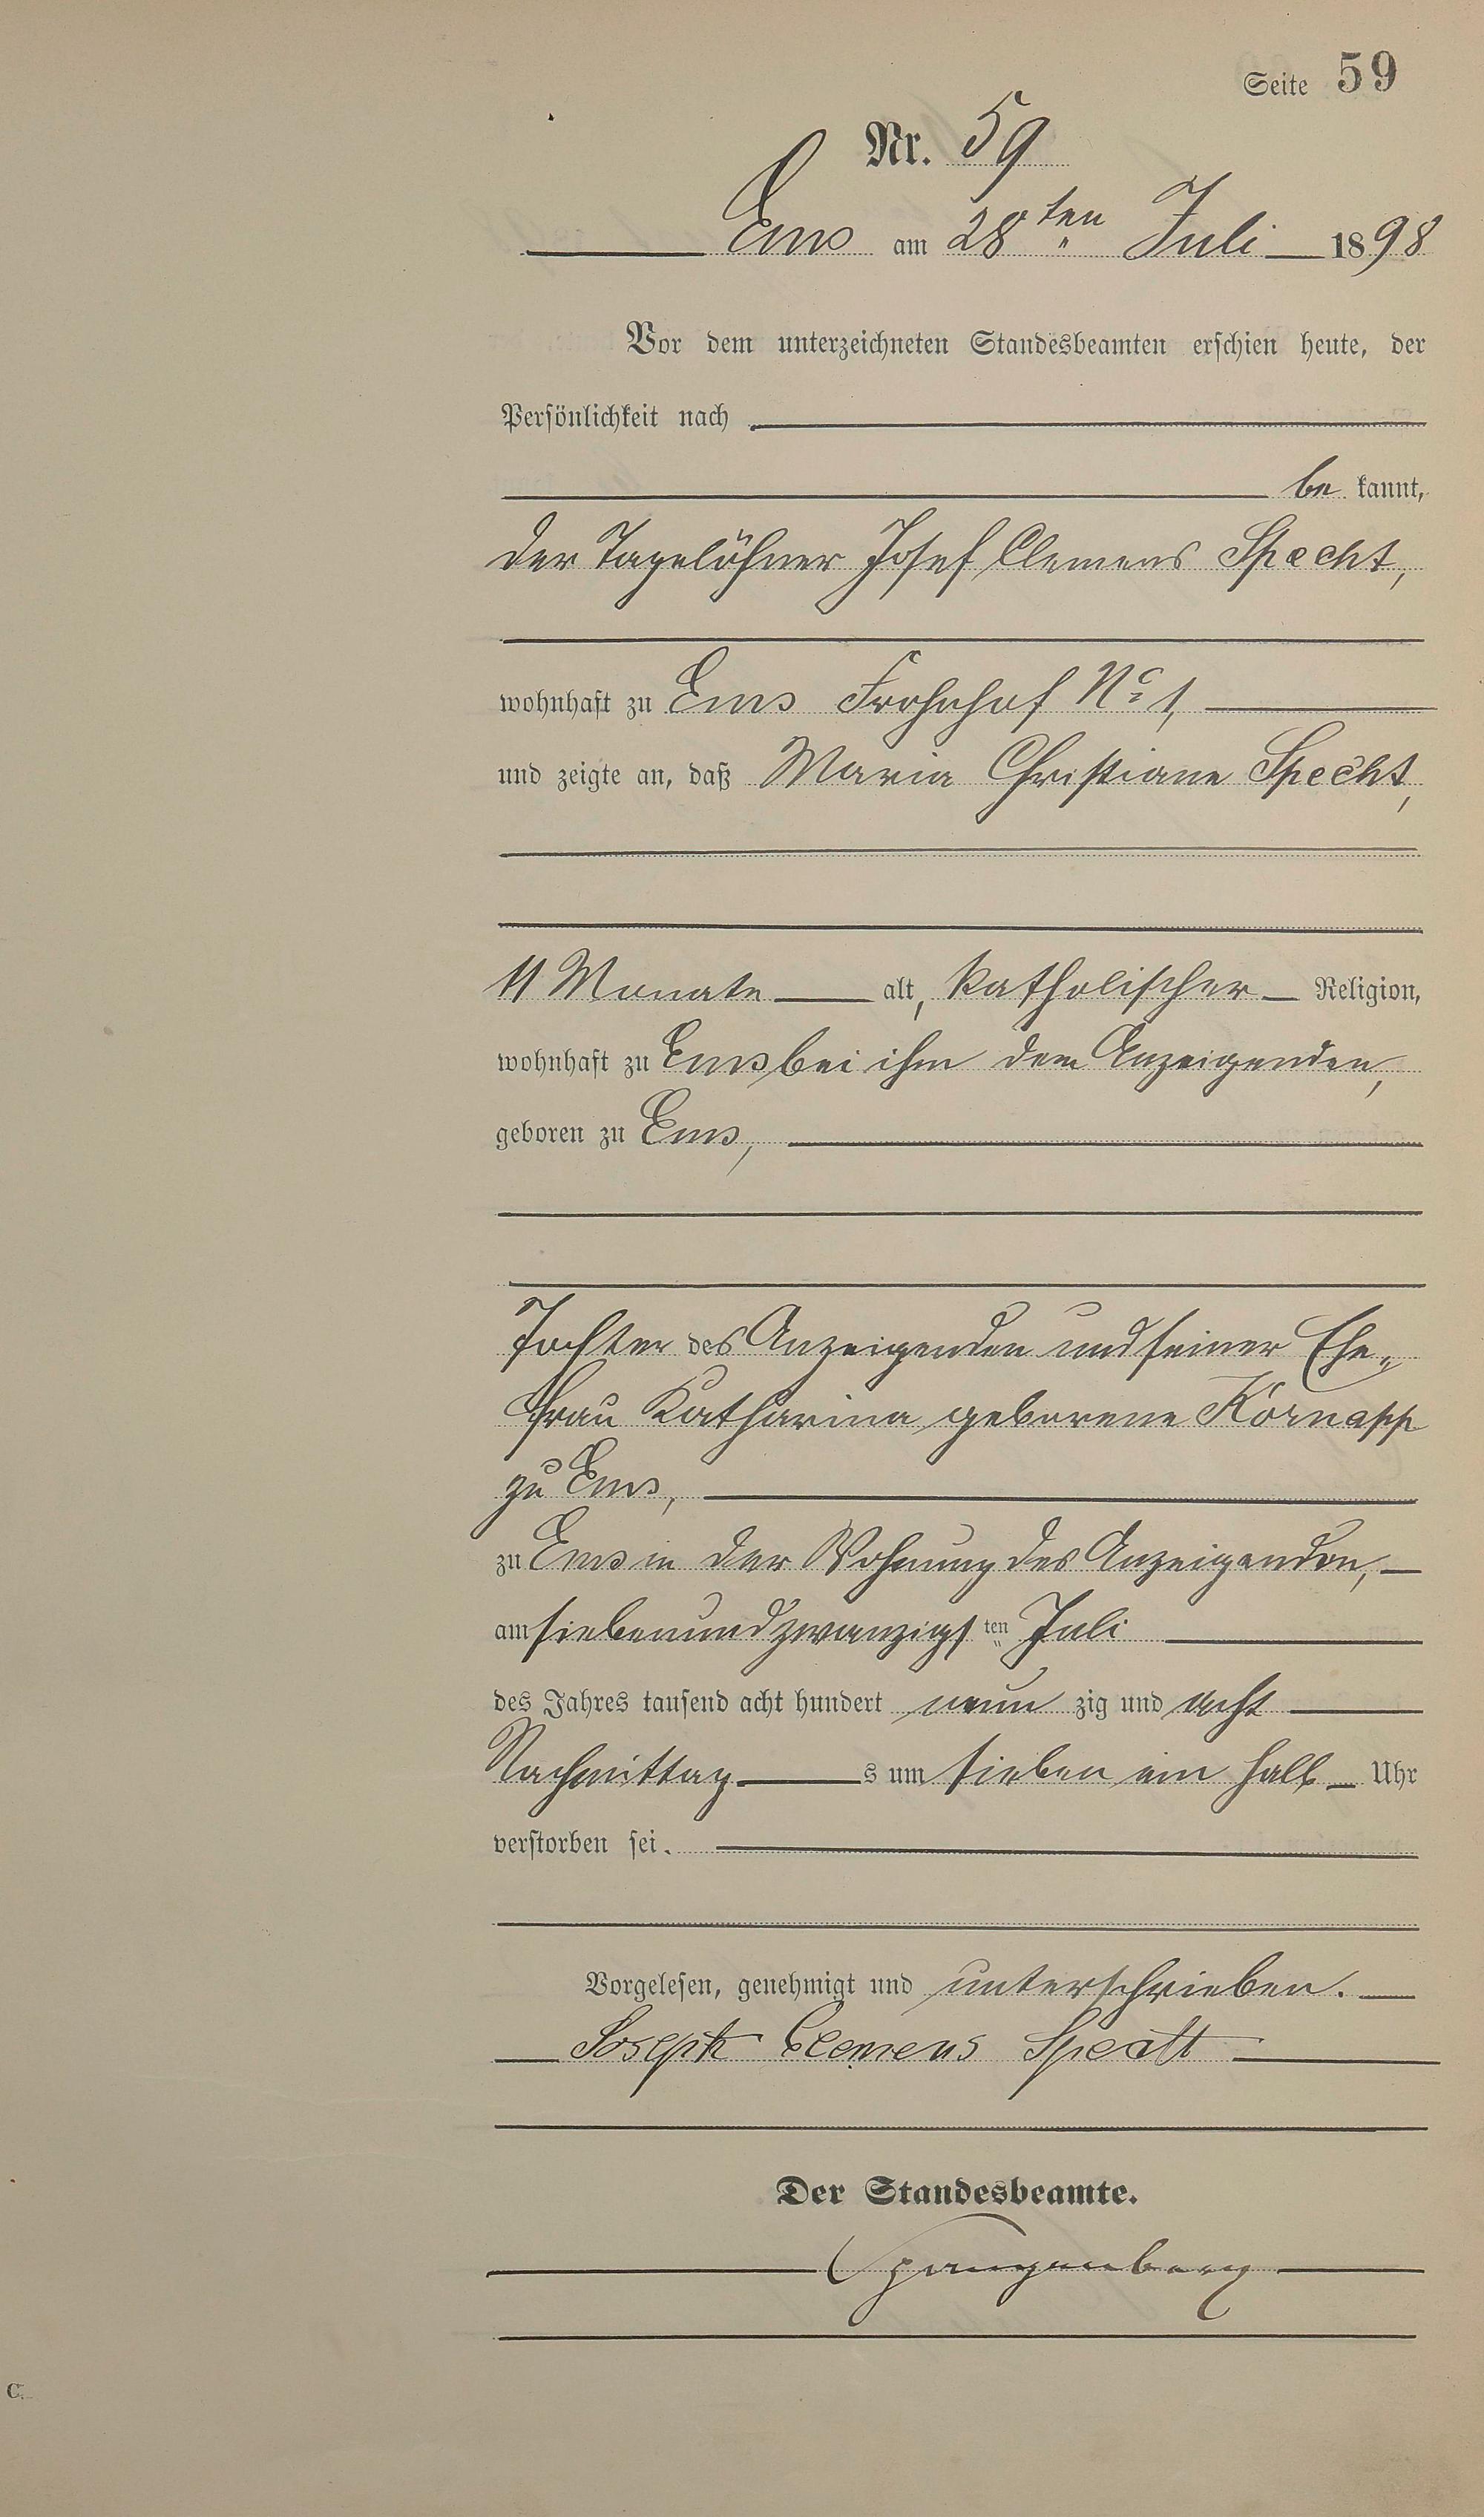 Seite 59
Nr. 59
Ems am 28ten Juli 1898
Vor dem unterzeichneten Standesbeamten erschien heute, der
Persönlichkeit nach
be kannt,
der Tagelöhner Josef Clemens Specht,
wohnhaft zu Ems Frohnhof No 1,
und zeigte an, daß Maria Christiane Specht,
11 Monate alt, katholischer Religion,
wohnhaft zu Ems bei ihm dem Anzeigenden,
geboren zu Ems,
Tochter des Anzeigenden und seiner Ehe„
frau Katharina geborene Körnapp
zu Ems,
zu Ems in der Wohnung des Anzeigenden,
am siebenundzwanzigsten Juli
des Jahres tausend acht hundert neun zig und acht
Nachmittag s um sieben ein halb Uhr
verstorben sei.
Vorgelesen, genehmigt und unterschrieben.
Joseph Clemens Specht
Der Standesbeamte.
Spangenberg
C.